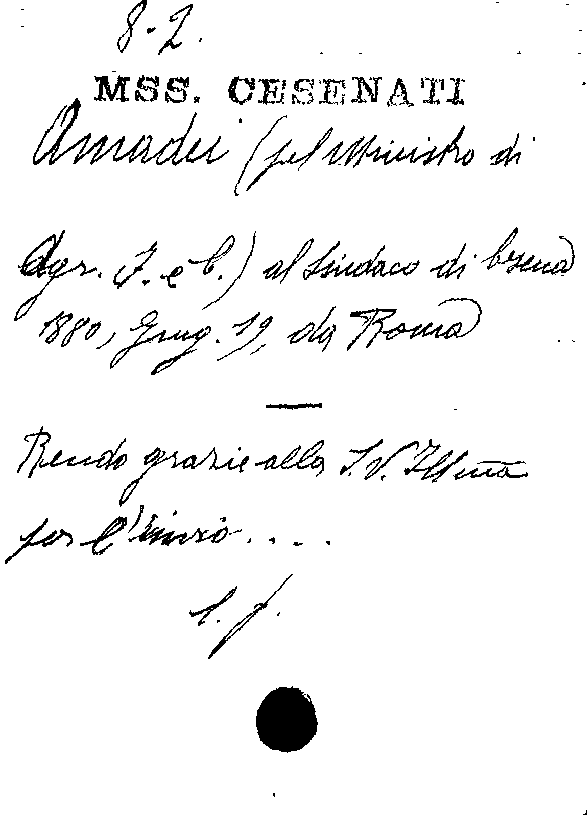 8-2.
MSS. CESENATI
Amadei (pel Ministro di
Agr. I. e C.) al Sindaco di Cesena
1880, Giug. 19, da Roma
Rendo grazie alla S.V. Ill̃ma
per l'invio....
l. f.